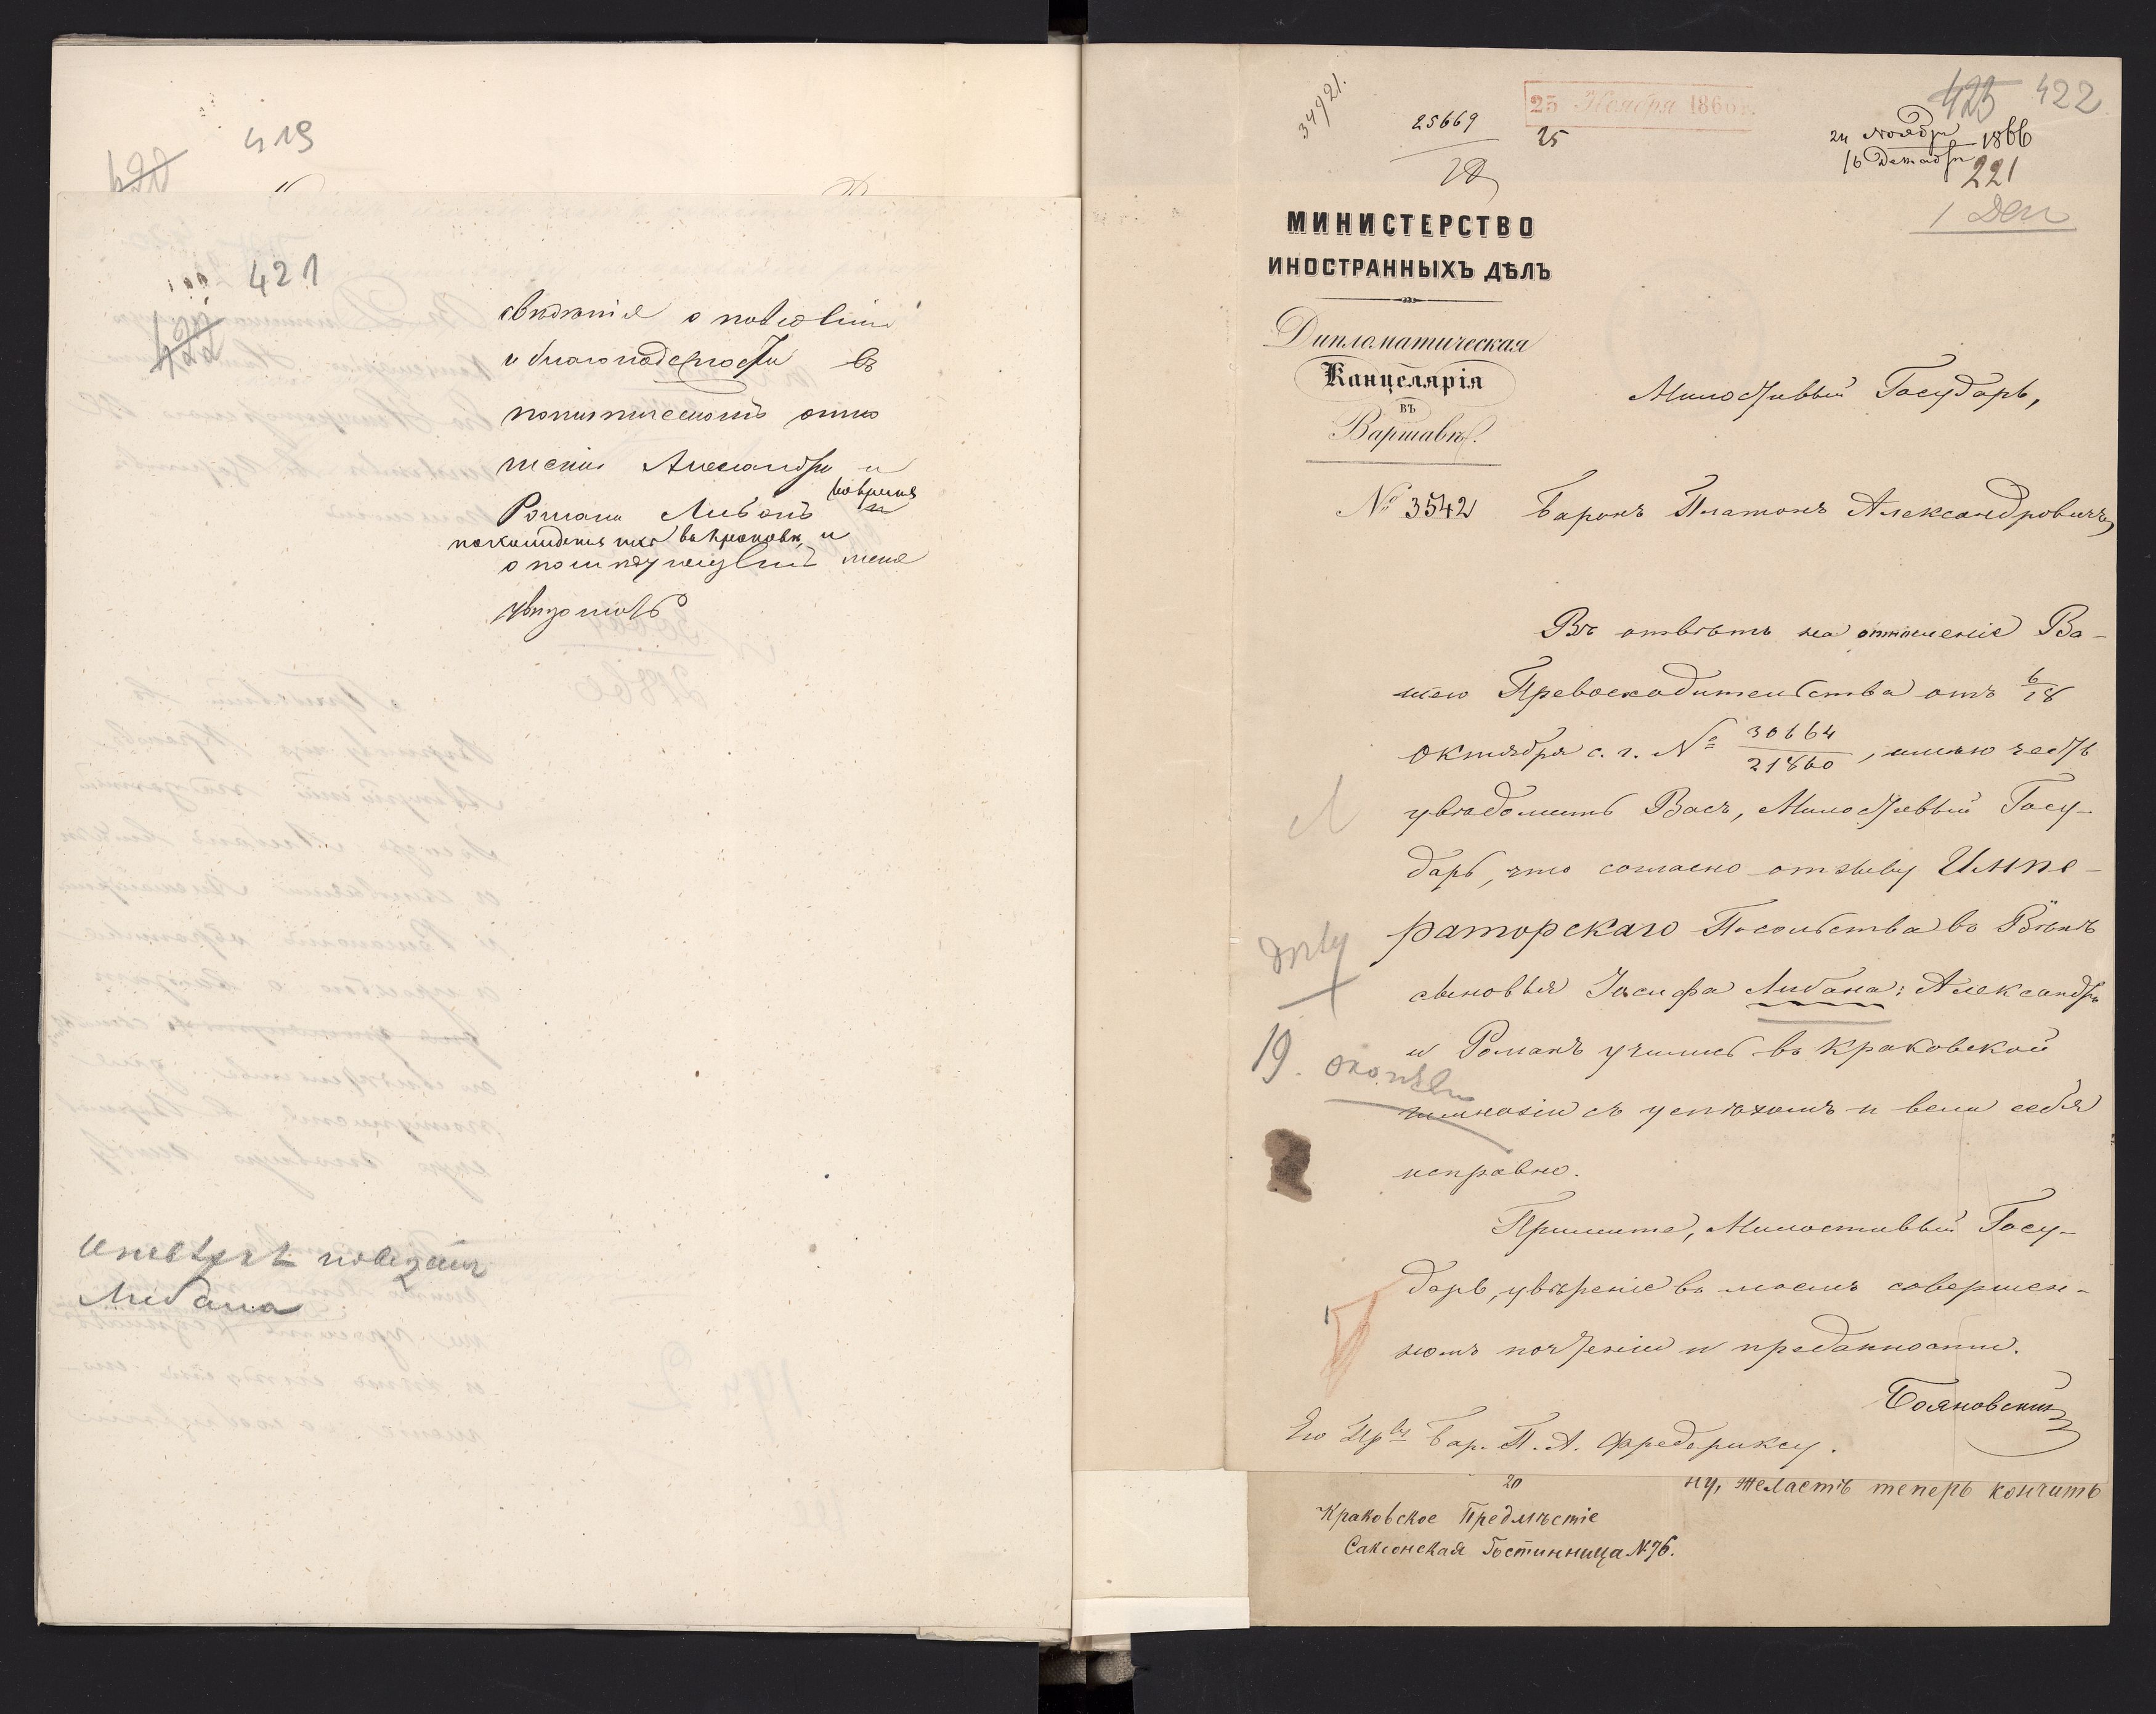 419
422
421
422
свѣдѣнія о поведеніи
и благонадежности въ
политическомъ отно
шеніи Александра и
Романа Либанъ во время
нахожденія ихъ въ Краковѣ, и
о послѣдующемъ меня
увѣдомить
Либана
34921.
25669
28
23 Ноября 1866
25
425 422
24 Ноября 1866
16 Декабря
221
1 Деп
МИНИСТЕРСТВО
ИНОСТРАННЫХЪ ДѢЛЪ
Дипломатическая
Канцелярія
въ
Варшавѣ.
№ 3542
Милостивый Государь,
Баронъ Платонъ Александровичъ,
Въ отвѣтъ на отношеніе Ва-
шего Превосходительства отъ 6/18
Октября с. г. № 30664/21860, имѣю честь
увѣдомить Васъ, Милостивый Госу-
дарь, что согласно отзыву Импе-
раторскаго Посольства въ Вѣнѣ
сыновья Іосифа Либана: Александръ
и Романъ учились въ Краковской
гимназіи съ успѣхомъ и вели себя
исправно.
19.
Примите, Милостивый Госу-
дарь, увѣреніе въ моемъ совершен-
номъ почтеніи и преданности.
Бояновскій
Его Прву Бар. П. А. Фредериксу.
20
ну, желаетъ теперь кончить
Краковское Предмѣстіе
Саксонская Гостинница №76.